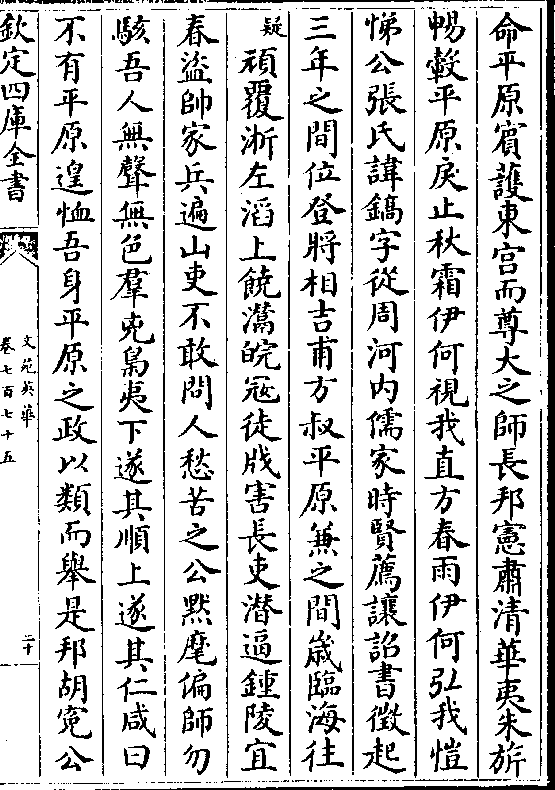 命平原賓䕶東宫而尊大之師長邦憲肅清華夷朱旂
惕轂平原戾止秋霜伊何視我直方春雨伊何弘我愷
悌公張氏諱鎬字從周河内儒家時賢薦讓詔書徵起
三年之間位登將相吉甫方叔平原兼之間歳臨海往
疑
頑覆浙左滔上饒灊皖冦徒戕害長吏潜逼鍾陵宜
春盜帥家兵遍山吏不敢問人愁苦之公黙麾偏師勿
駭吾人無聲無色羣克梟夷下遂其順上遂其仁咸曰
不有平原遑恤吾身平原之政以類而舉是邦胡寃公
欽定四庫全書
文苑英華
卷七百七十五
二十